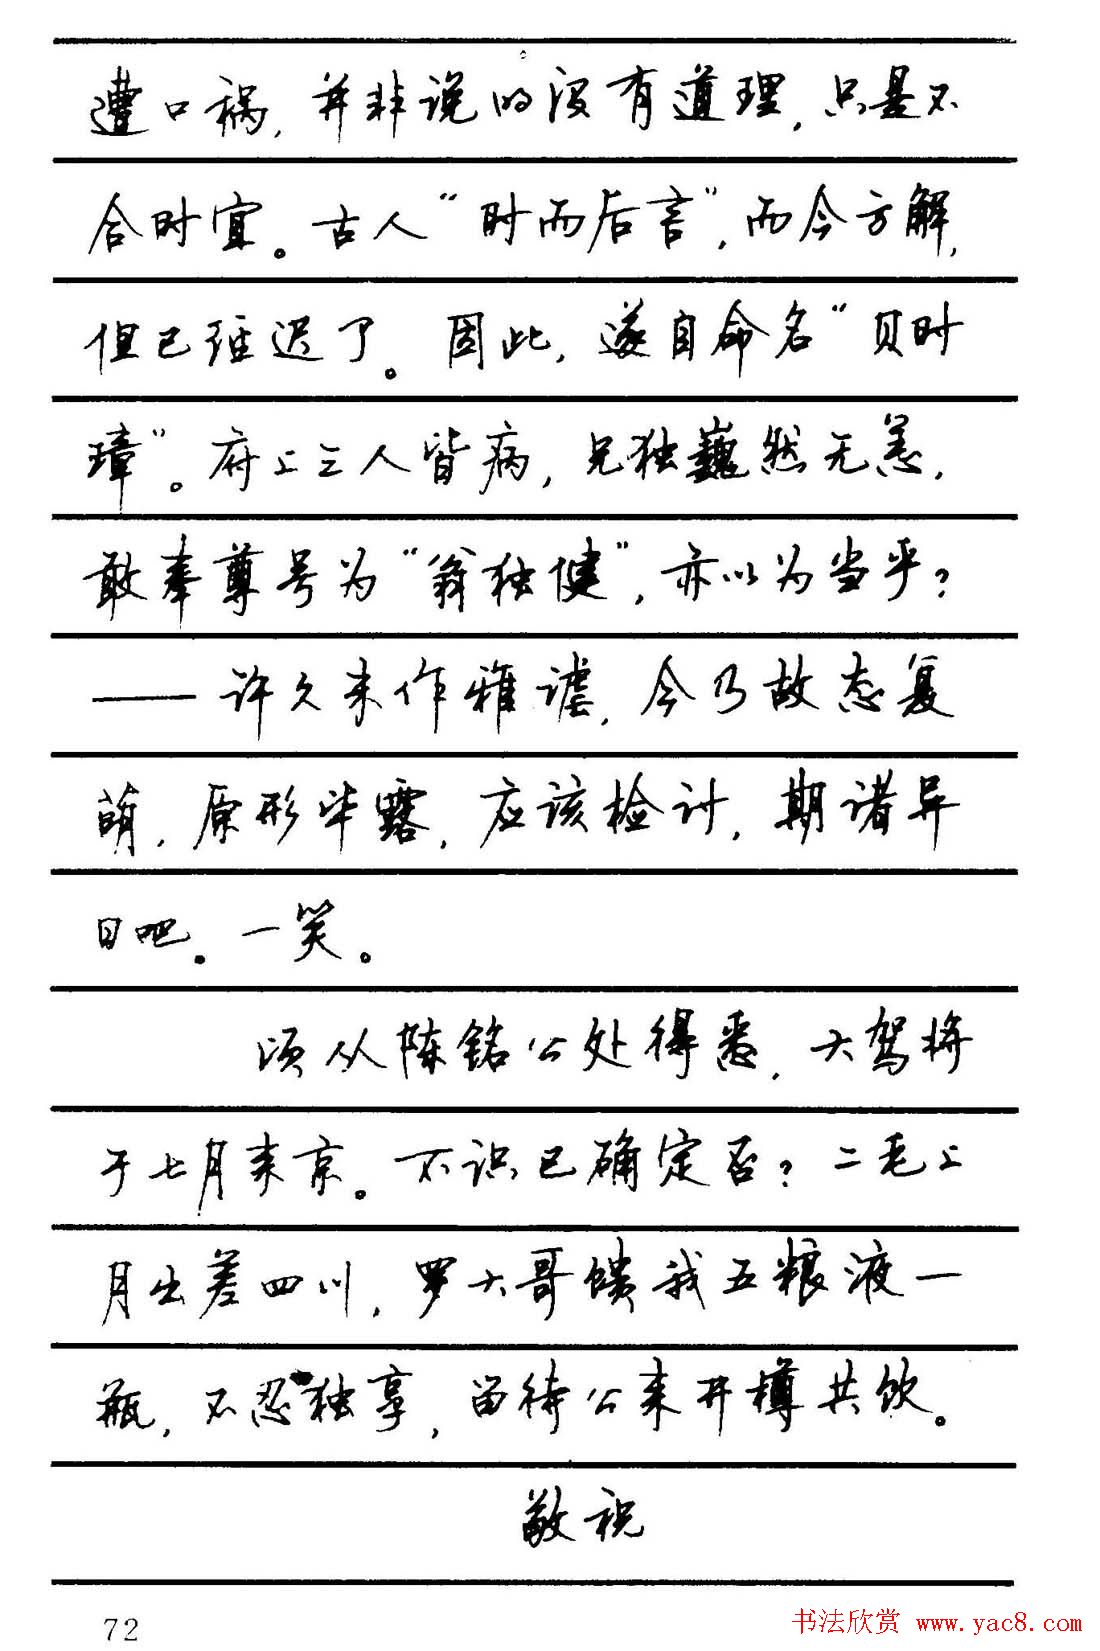 遭口祸，并非说的没有道理，只是不
合时宜。古人“时而后言”，而今方解，
但已经迟了。因此，遂自命名“贝时
璋”。府上三人皆病，兄独巍然无恙，
敢奉尊号为“翁独健”，亦以为当乎？
——许久未作雅谑，今乃故态复
萌，原形毕露，应该检讨，期诸异
日吧。一笑。
顷从陈铭公处得悉，大驾将
于七月来京。不识已确定否？二毛上
月出差四川，罗大哥馈我五粮液一
瓶，不忍独享，留待公来开樽共饮。
敬祝
72
书法欣赏 www.yac8.com